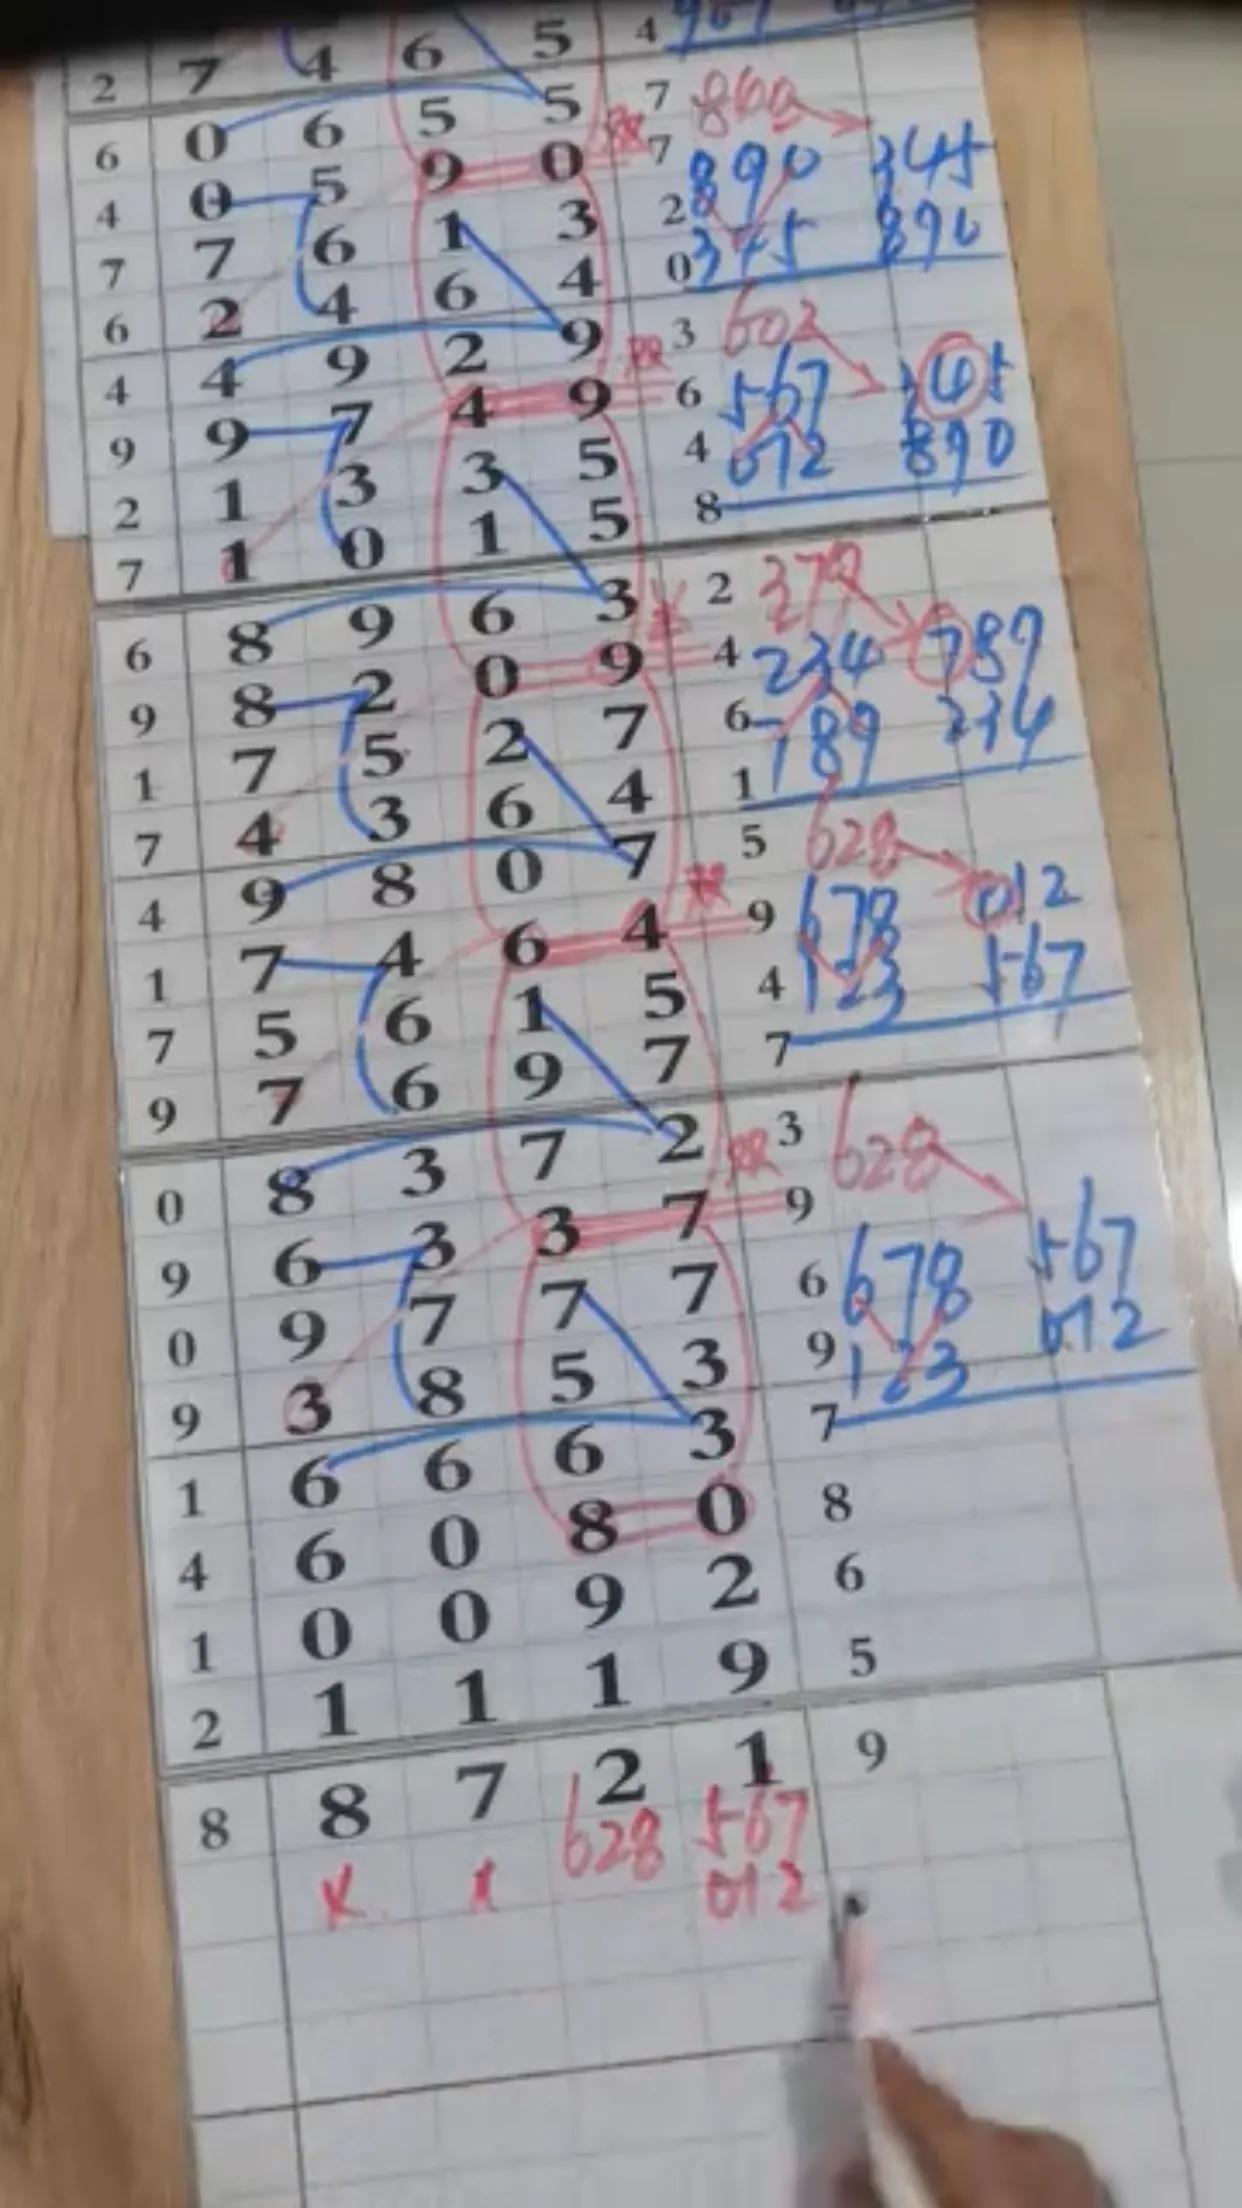 2 7 4 6 5 4
6 0 6 5 5 7
4 0 5 9 0 双 7 890 345
7 7 6 1 3 2 345 890
6 2 4 6 4 0
4 4 9 2 9 3 602
9 9 7 4 9 双 6 567 345
2 1 3 3 5 4 012 890
7 1 0 1 5 8
6 8 9 6 3 2 378
9 8 2 0 9 4 234 789
1 7 5 2 7 6 789 234
7 4 3 6 4 1
4 9 8 0 7 5 628
1 7 4 6 4 双 9 678 012
7 5 6 1 5 4 123 567
9 7 6 9 7 7
0 8 3 7 2 3 628
9 6 3 3 7 双 9
0 9 7 7 7 6 678 567
9 3 8 5 3 9 123 012
1 6 6 6 3 7
4 6 0 8 0 8
1 0 0 9 2 6
2 1 1 1 9 5
8 8 7 2 1 9
628 567
x x 012